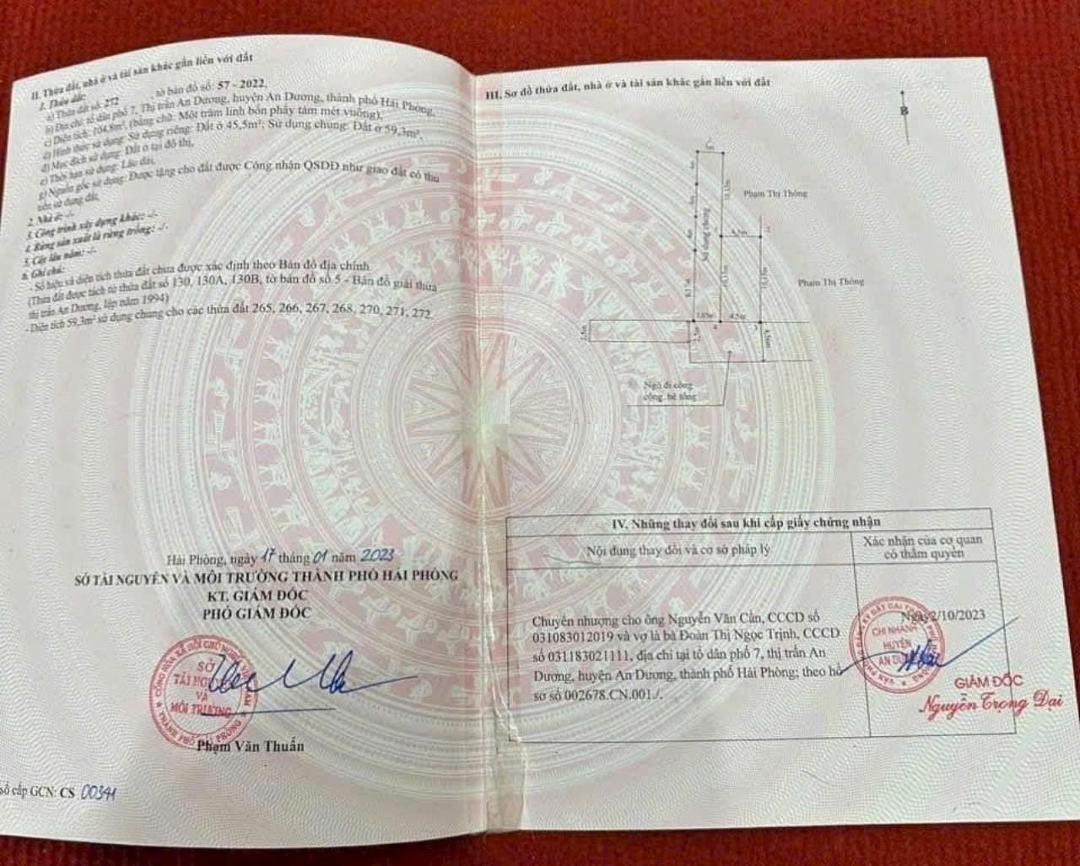 II. Thửa đất, nhà ở và tài sản khác gắn liền với đất
1. Thửa đất:
a) Thửa đất số: 272 tờ bản đồ số: 57 - 2022,
b) Địa chỉ: tổ dân phố 7, Thị trấn An Dương, huyện An Dương, thành phố Hải Phòng,
c) Diện tích: 104,8m², (bằng chữ: Một trăm linh bốn phẩy tám mét vuông),
d) Hình thức sử dụng: Sử dụng riêng: Đất ở 45,5m²; Sử dụng chung: Đất ở 59,3m²,
đ) Mục đích sử dụng: Đất ở tại đô thị,
e) Thời hạn sử dụng: Lâu dài,
g) Nguồn gốc sử dụng: Được tặng cho đất được Công nhận QSDĐ như giao đất có thu
tiền sử dụng đất,
2. Nhà ở: -/-
3. Công trình xây dựng khác: -/-
4. Rừng sản xuất là rừng trồng: -/-
5. Cây lâu năm: -/-
6. Ghi chú:
- Số hiệu và diện tích thửa đất chưa được xác định theo Bản đồ địa chính
(Thửa đất được tách từ thửa đất số 130, 130A, 130B, tờ bản đồ số 5 - Bản đồ giải thửa
thị trấn An Dương, lập năm 1994)
- Diện tích 59,3m² sử dụng chung cho các thửa đất 265, 266, 267, 268, 270, 271, 272.
Hải Phòng, ngày 17 tháng 01 năm 2023
SỞ TÀI NGUYÊN VÀ MÔI TRƯỜNG THÀNH PHỐ HẢI PHÒNG
KT. GIÁM ĐỐC
PHÓ GIÁM ĐỐC
SỞ
TÀI NGUYÊN
VÀ
MÔI TRƯỜNG
Phạm Văn Thuấn
số cấp GCN: CS 00341
III. Sơ đồ thửa đất, nhà ở và tài sản khác gắn liền với đất
B
Phạm Thị Thông
Sử dụng chung
Phạm Thị Thông
Ngõ đi công
cộng, bê tông
IV. Những thay đổi sau khi cấp giấy chứng nhận
Nội dung thay đổi và cơ sở pháp lý
Xác nhận của cơ quan
có thẩm quyền
Chuyển nhượng cho ông Nguyễn Văn Cần, CCCD số
031083012019 và vợ là bà Đoàn Thị Ngọc Trịnh, CCCD
số 031183021111, địa chỉ tại tổ dân phố 7, thị trấn An
Dương, huyện An Dương, thành phố Hải Phòng; theo hồ
sơ số 002678.CN.001./.
Ngày 2/10/2023
CHI NHÁNH
HUYỆN
AN DƯƠNG
GIÁM ĐỐC
Nguyễn Trọng Đai